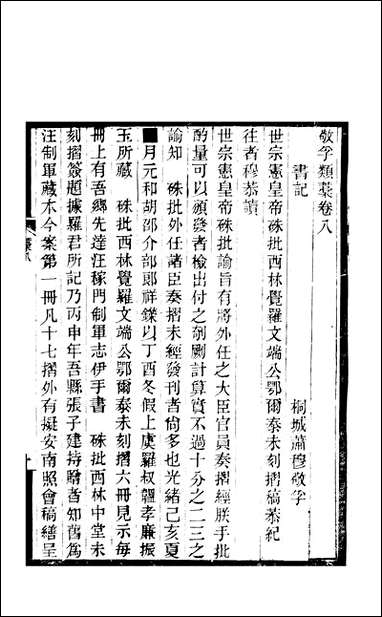 敬孚類稾卷八
桐城蕭穆敬孚
書記
世宗憲皇帝硃批西林覺羅文端公鄂爾泰未刻摺稿恭紀
往者穆恭讀
世宗憲皇帝硃批諭旨有將外任之大臣官員奏摺經朕手批
酌量可以頒發者檢出付之剞劂計算實不過十分之二三之
諭知 硃批外任諸臣奏摺未經發刊者尙多也光緒己亥夏
月元和胡邵介部郞祥鑅以丁酉冬假上虞羅叔韞孝廉振
玉所藏 硃批西林覺羅文端公鄂爾泰未刻摺六冊見示每
冊上有吾鄕先達汪稼門制軍志伊手書 硃批西林中堂未
刻摺簽題據羅君所記乃丙申年吾縣張子建持贈者知舊爲
汪制軍藏本今案第一冊凡十七摺外有擬安南照會稿繕呈